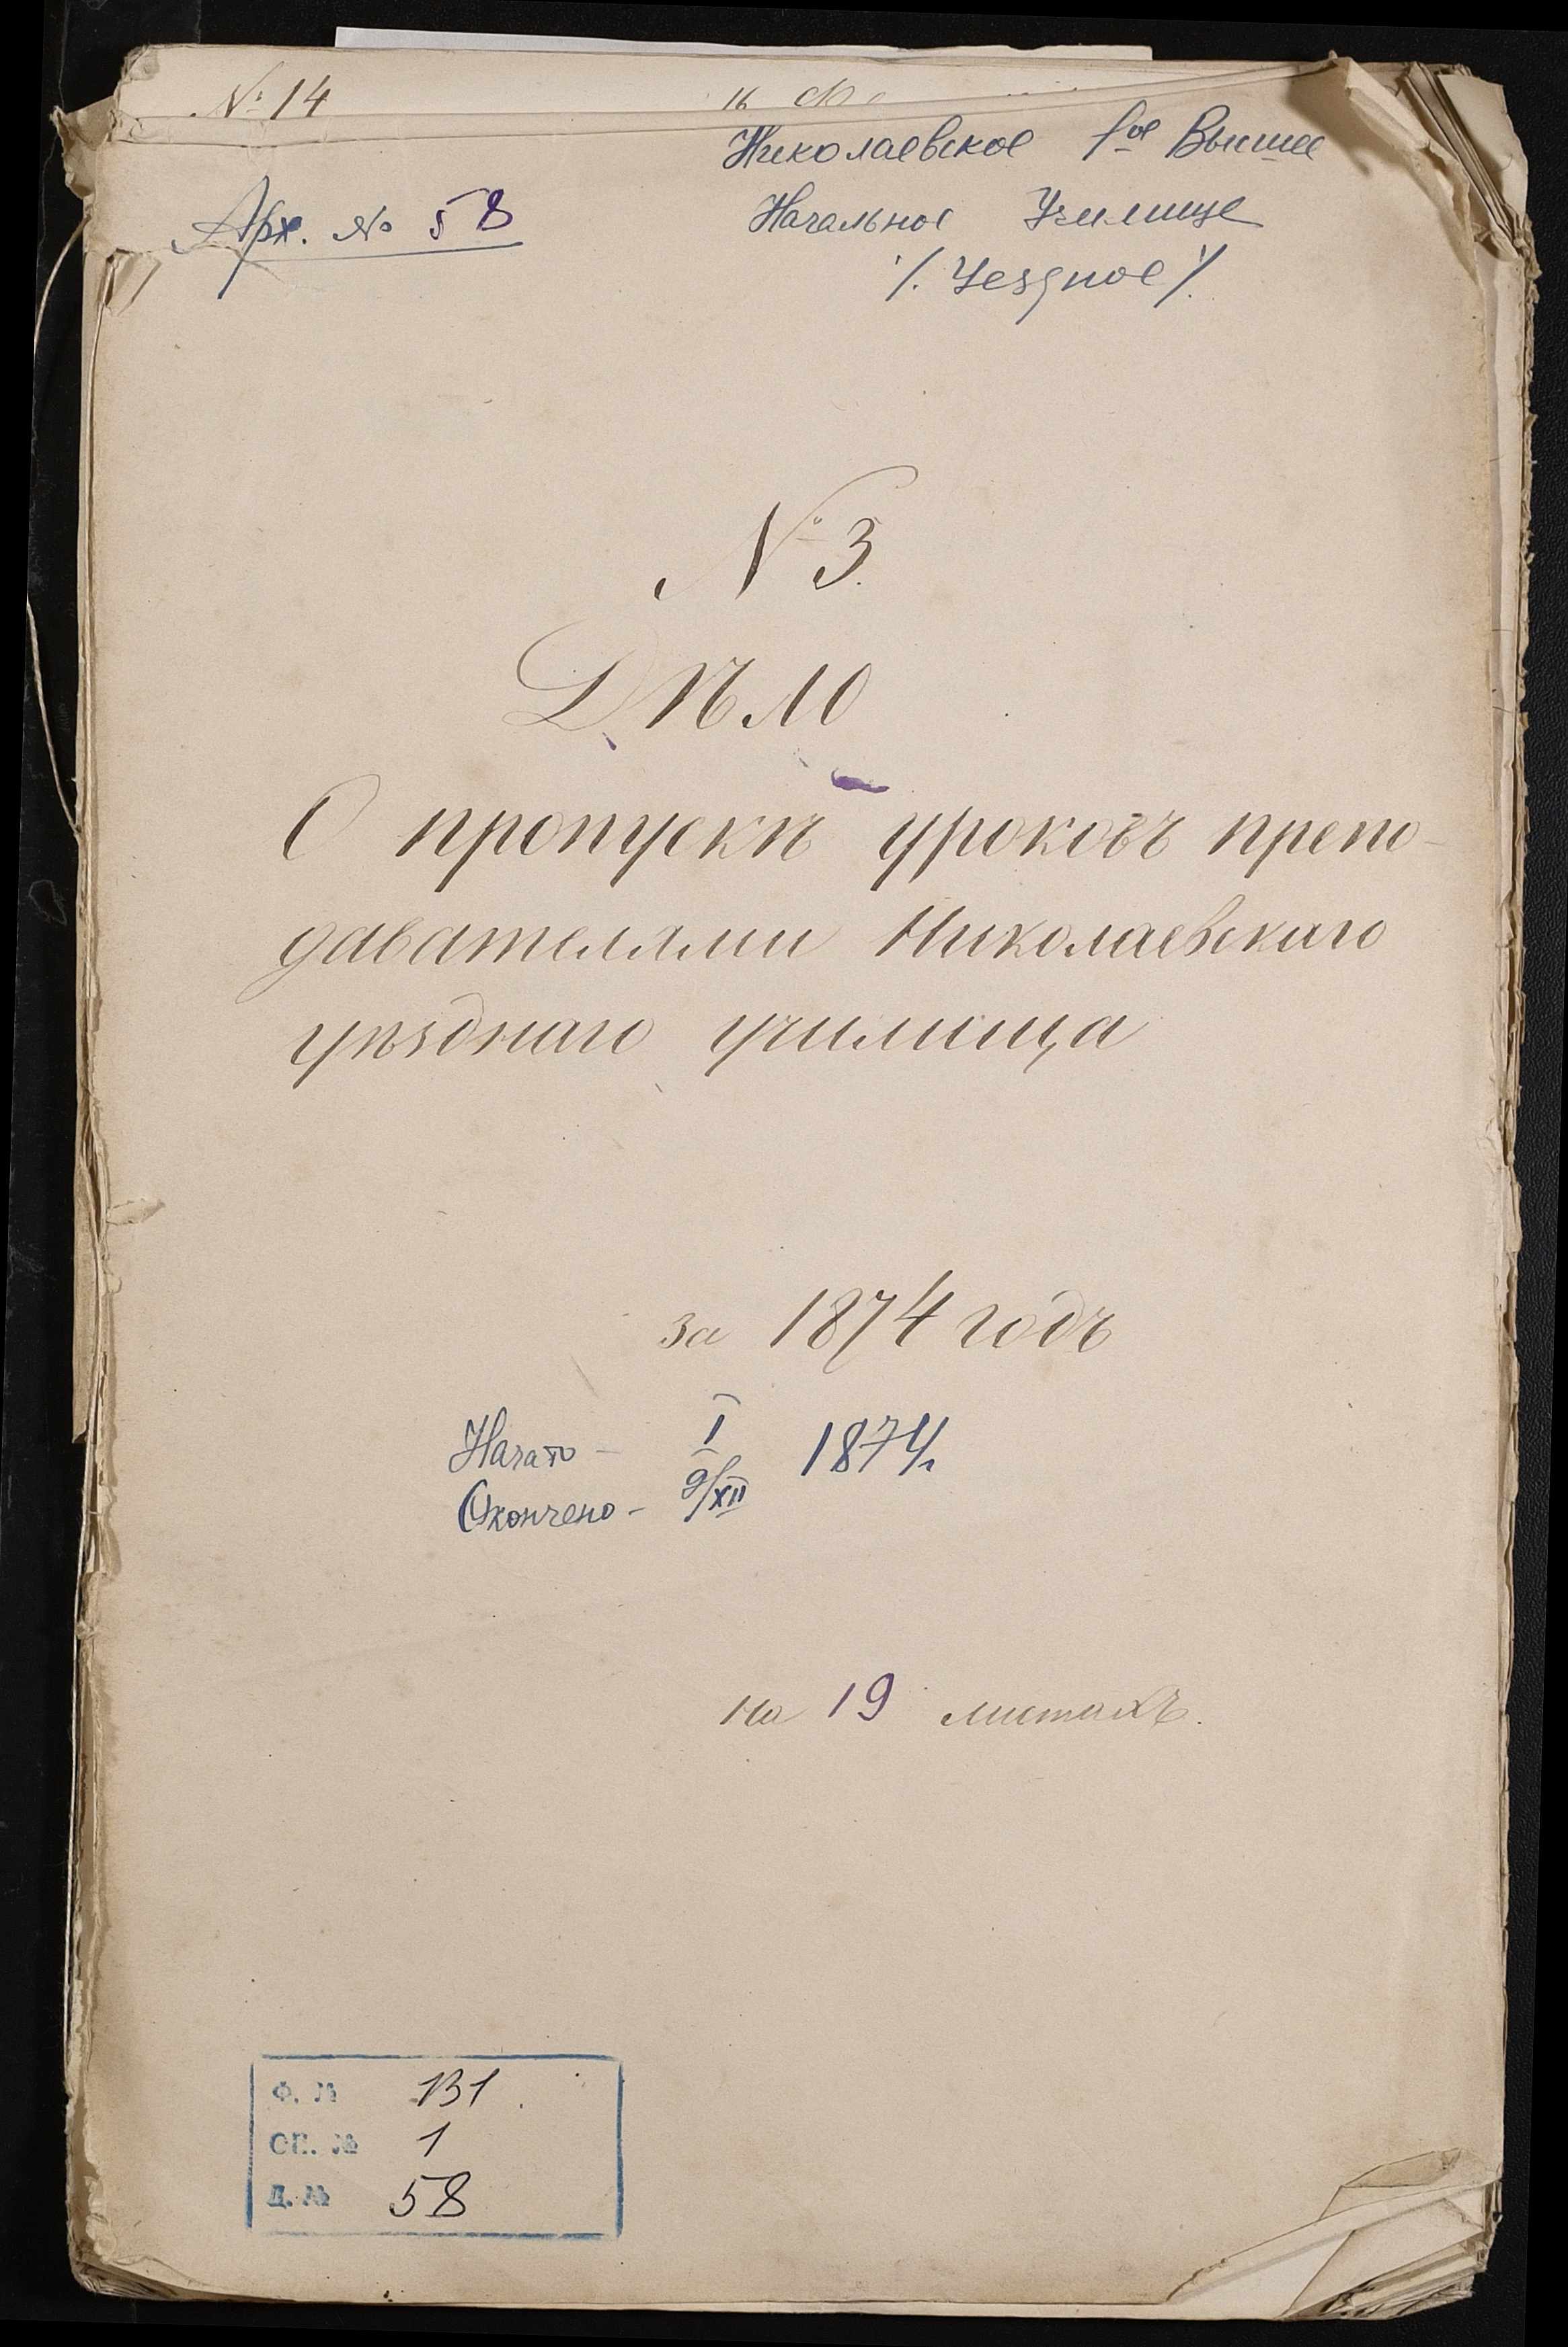 № 14
16
Николаевское 1ое Высшее
Арх. № 58
Начальное Училище
/. Уездное /.
№ 3.
Дѣло
О пропускѣ уроковъ препо-
давателями Николаевскаго
уѣзднаго училища
за 1874 годъ
Начато - I 1874г.
Окончено - 9/XII
на 19 листахъ.
Ф. № 131.
ОП. № 1
Д. № 58